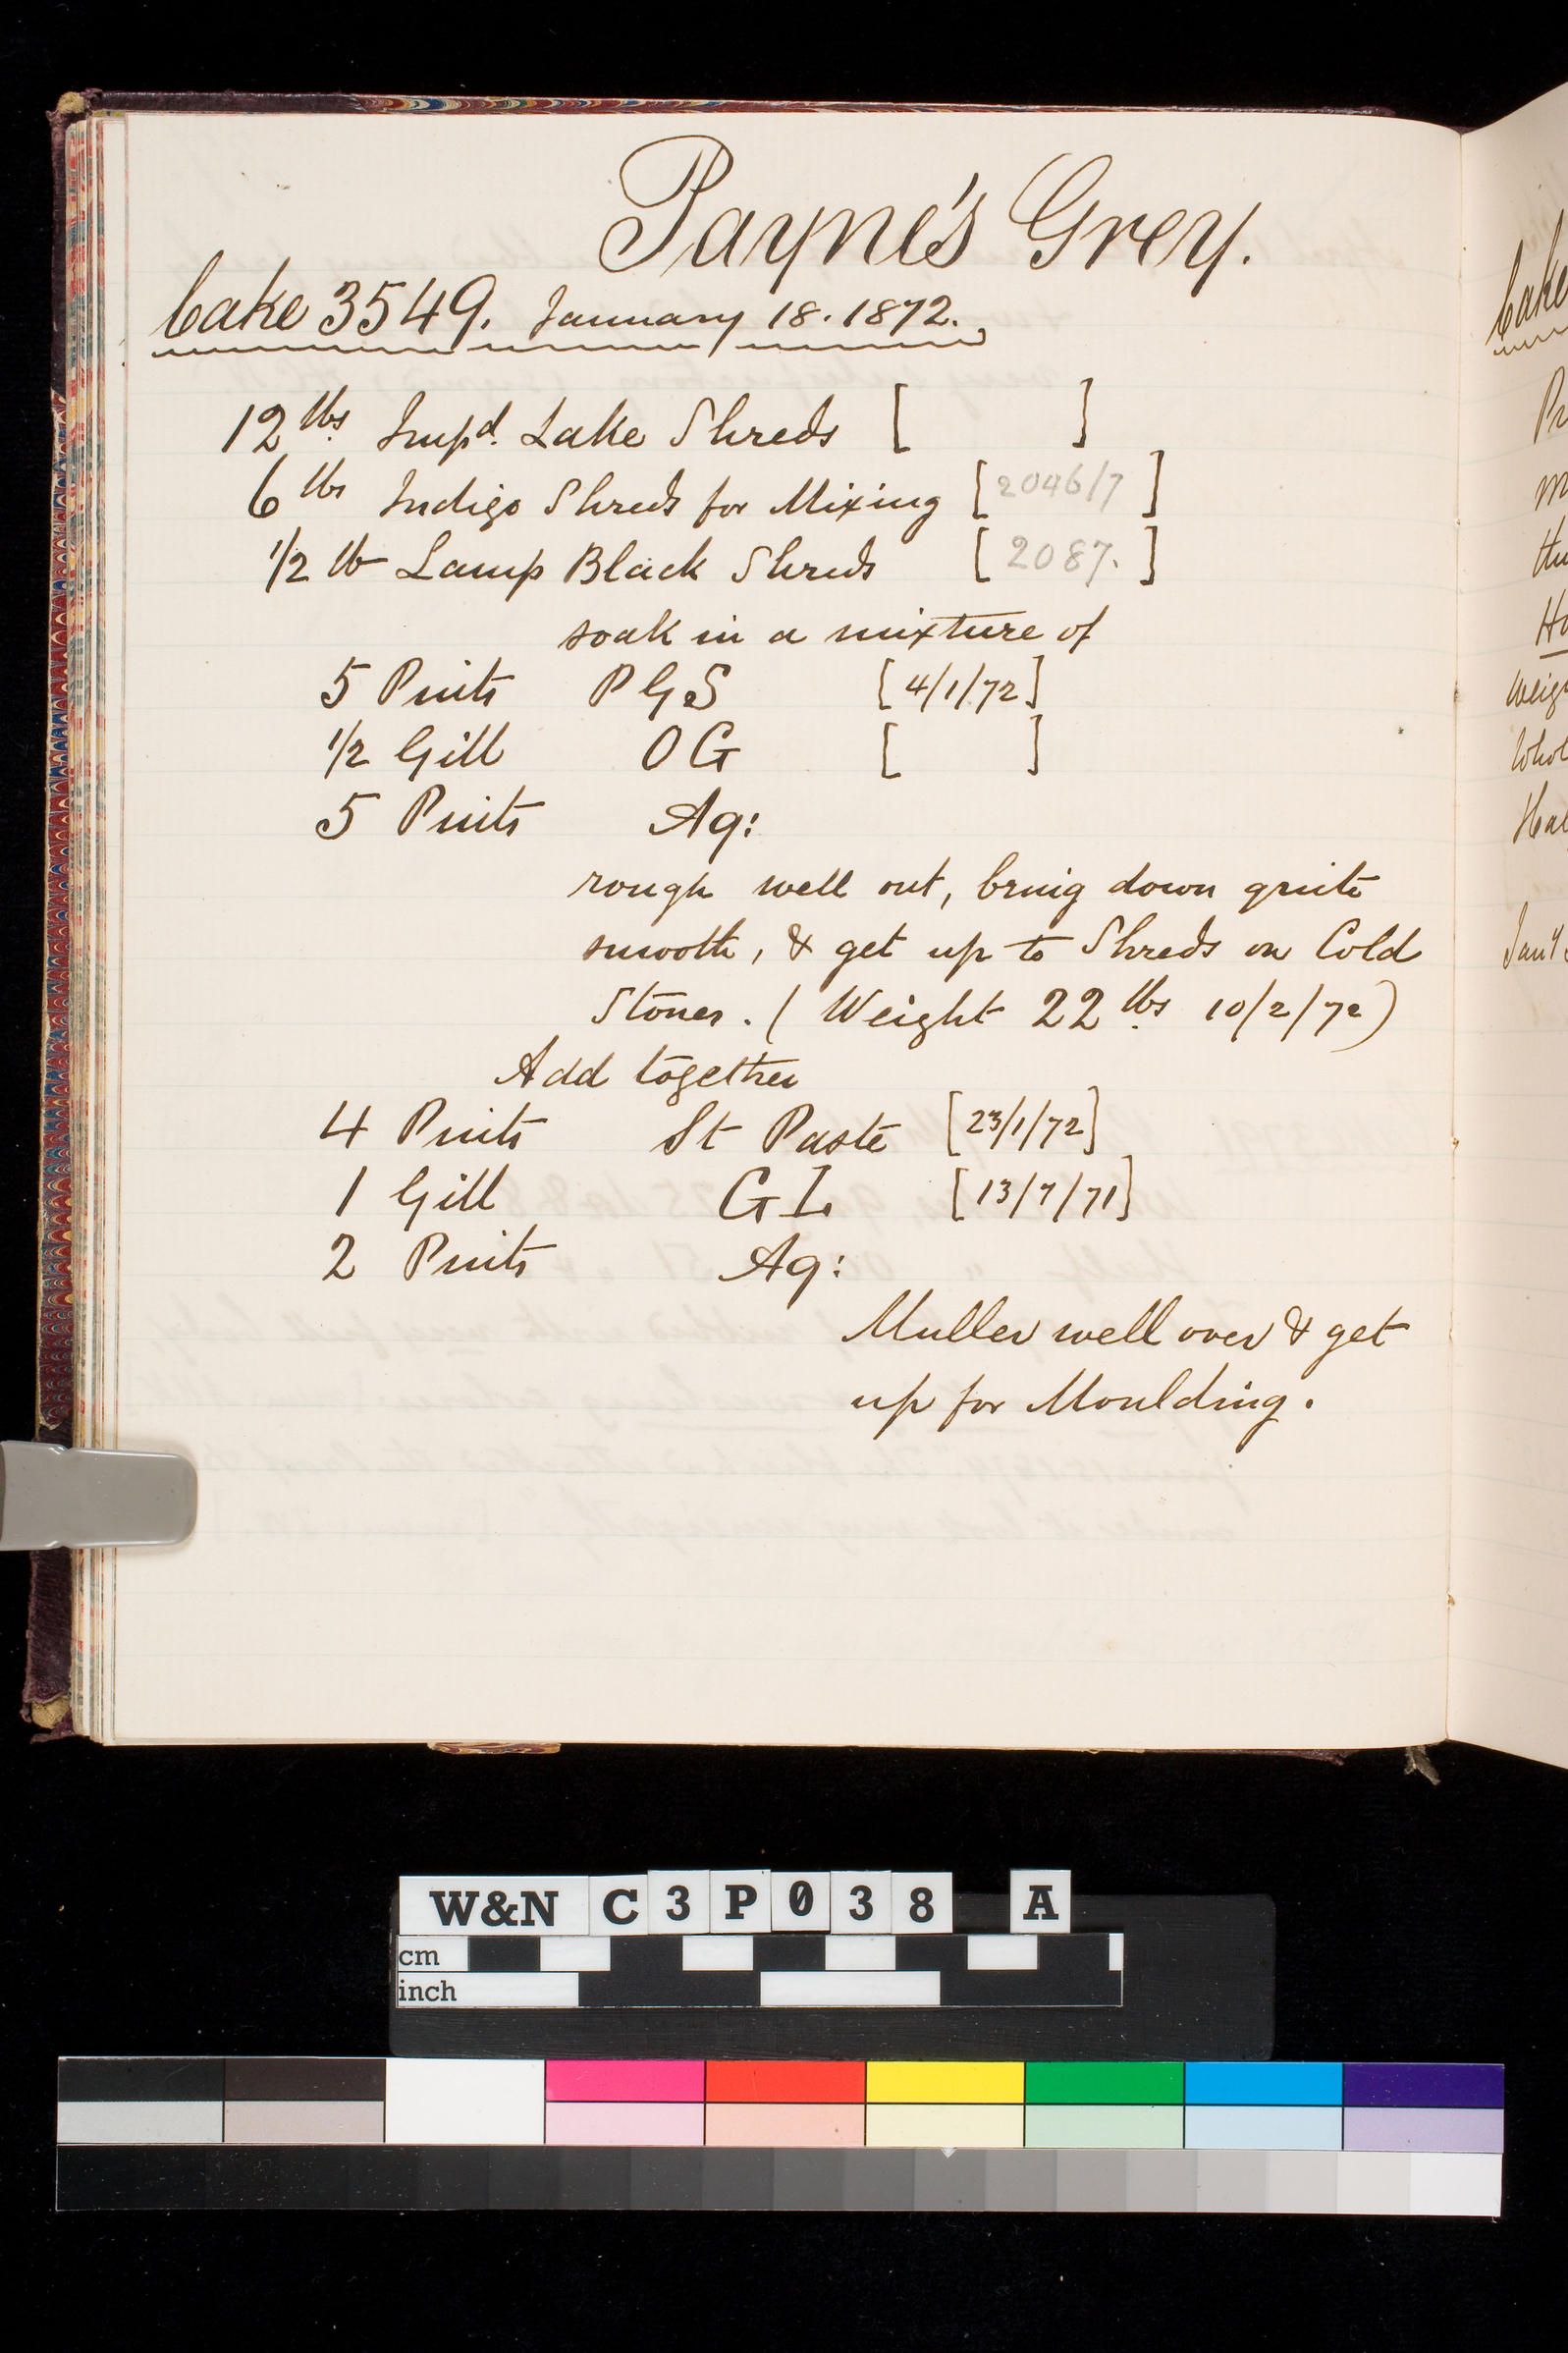 Payne's Grey.
Cake 3549. January 18. 1872.
12 lbs Impd. Lake Shreds [ ]
6 lbs Indigo Shreds for Mixing [2046/7]
1/2 lb Lamp Black Shreds [2087.]
soak in a mixture of
5 Pints P G S [4/1/72]
1/2 Gill O G [ ]
5 Pints Aq:
rough well out, bring down quite
smooth, & get up to Shreds on Cold
Stones. (Weight 22 lbs 10/2/72)
Add together
4 Pints St Paste [23/1/72]
1 Gill G L [13/7/71]
2 Pints Aq:
Muller well over & get
up for Moulding.
Cake
Pr
m
Weig
Whol
Hal
Jany
W&N C3P038 A
cm
inch